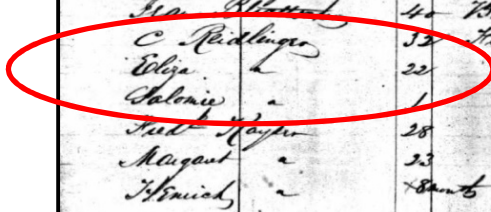 C Reidlinger 32
Eliza " 22
Salomie " 1
Fredk Kayser 28
Margaret " 23
Heinrich " 8 month